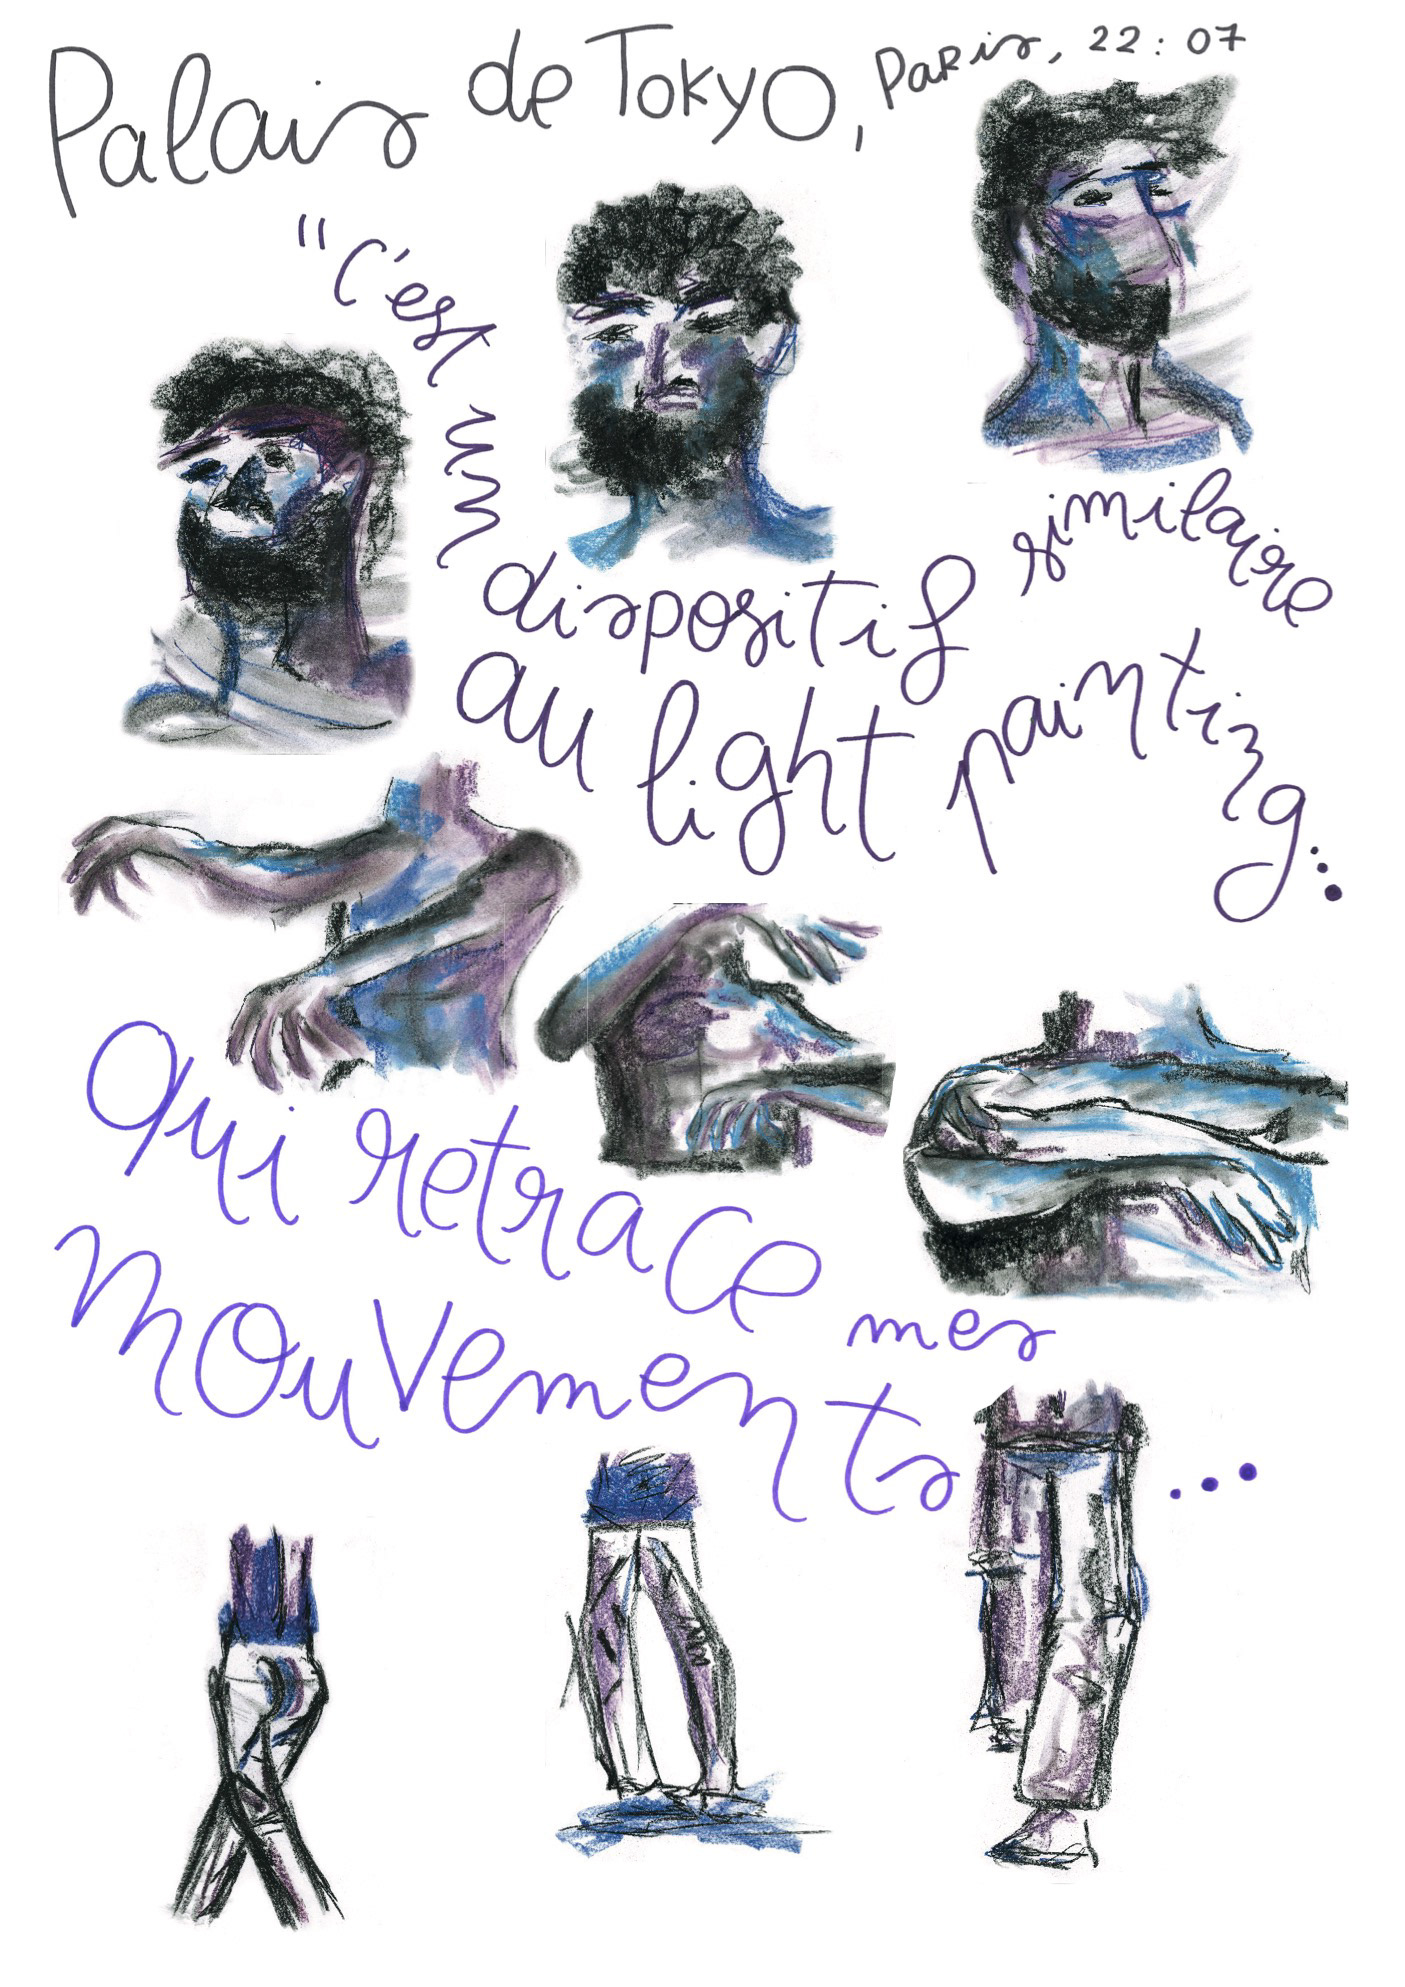 Palais de Tokyo, Paris, 22:07
"c'est
un
dispositif similaire
au light painting...
qui retrace mes
mouvements...